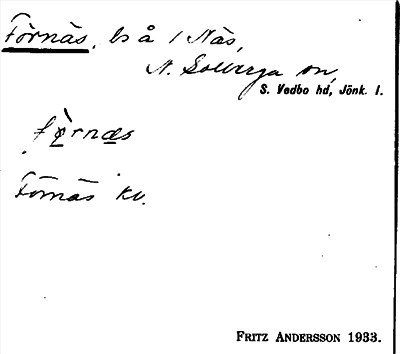 Förnäs, ls å 1 Näs,
N. Solberga sn,
S. Vedbo hd, Jönk. l.
fɶ̀rnæs
Förnäs kv.
FRITZ ANDERSSON 1933.